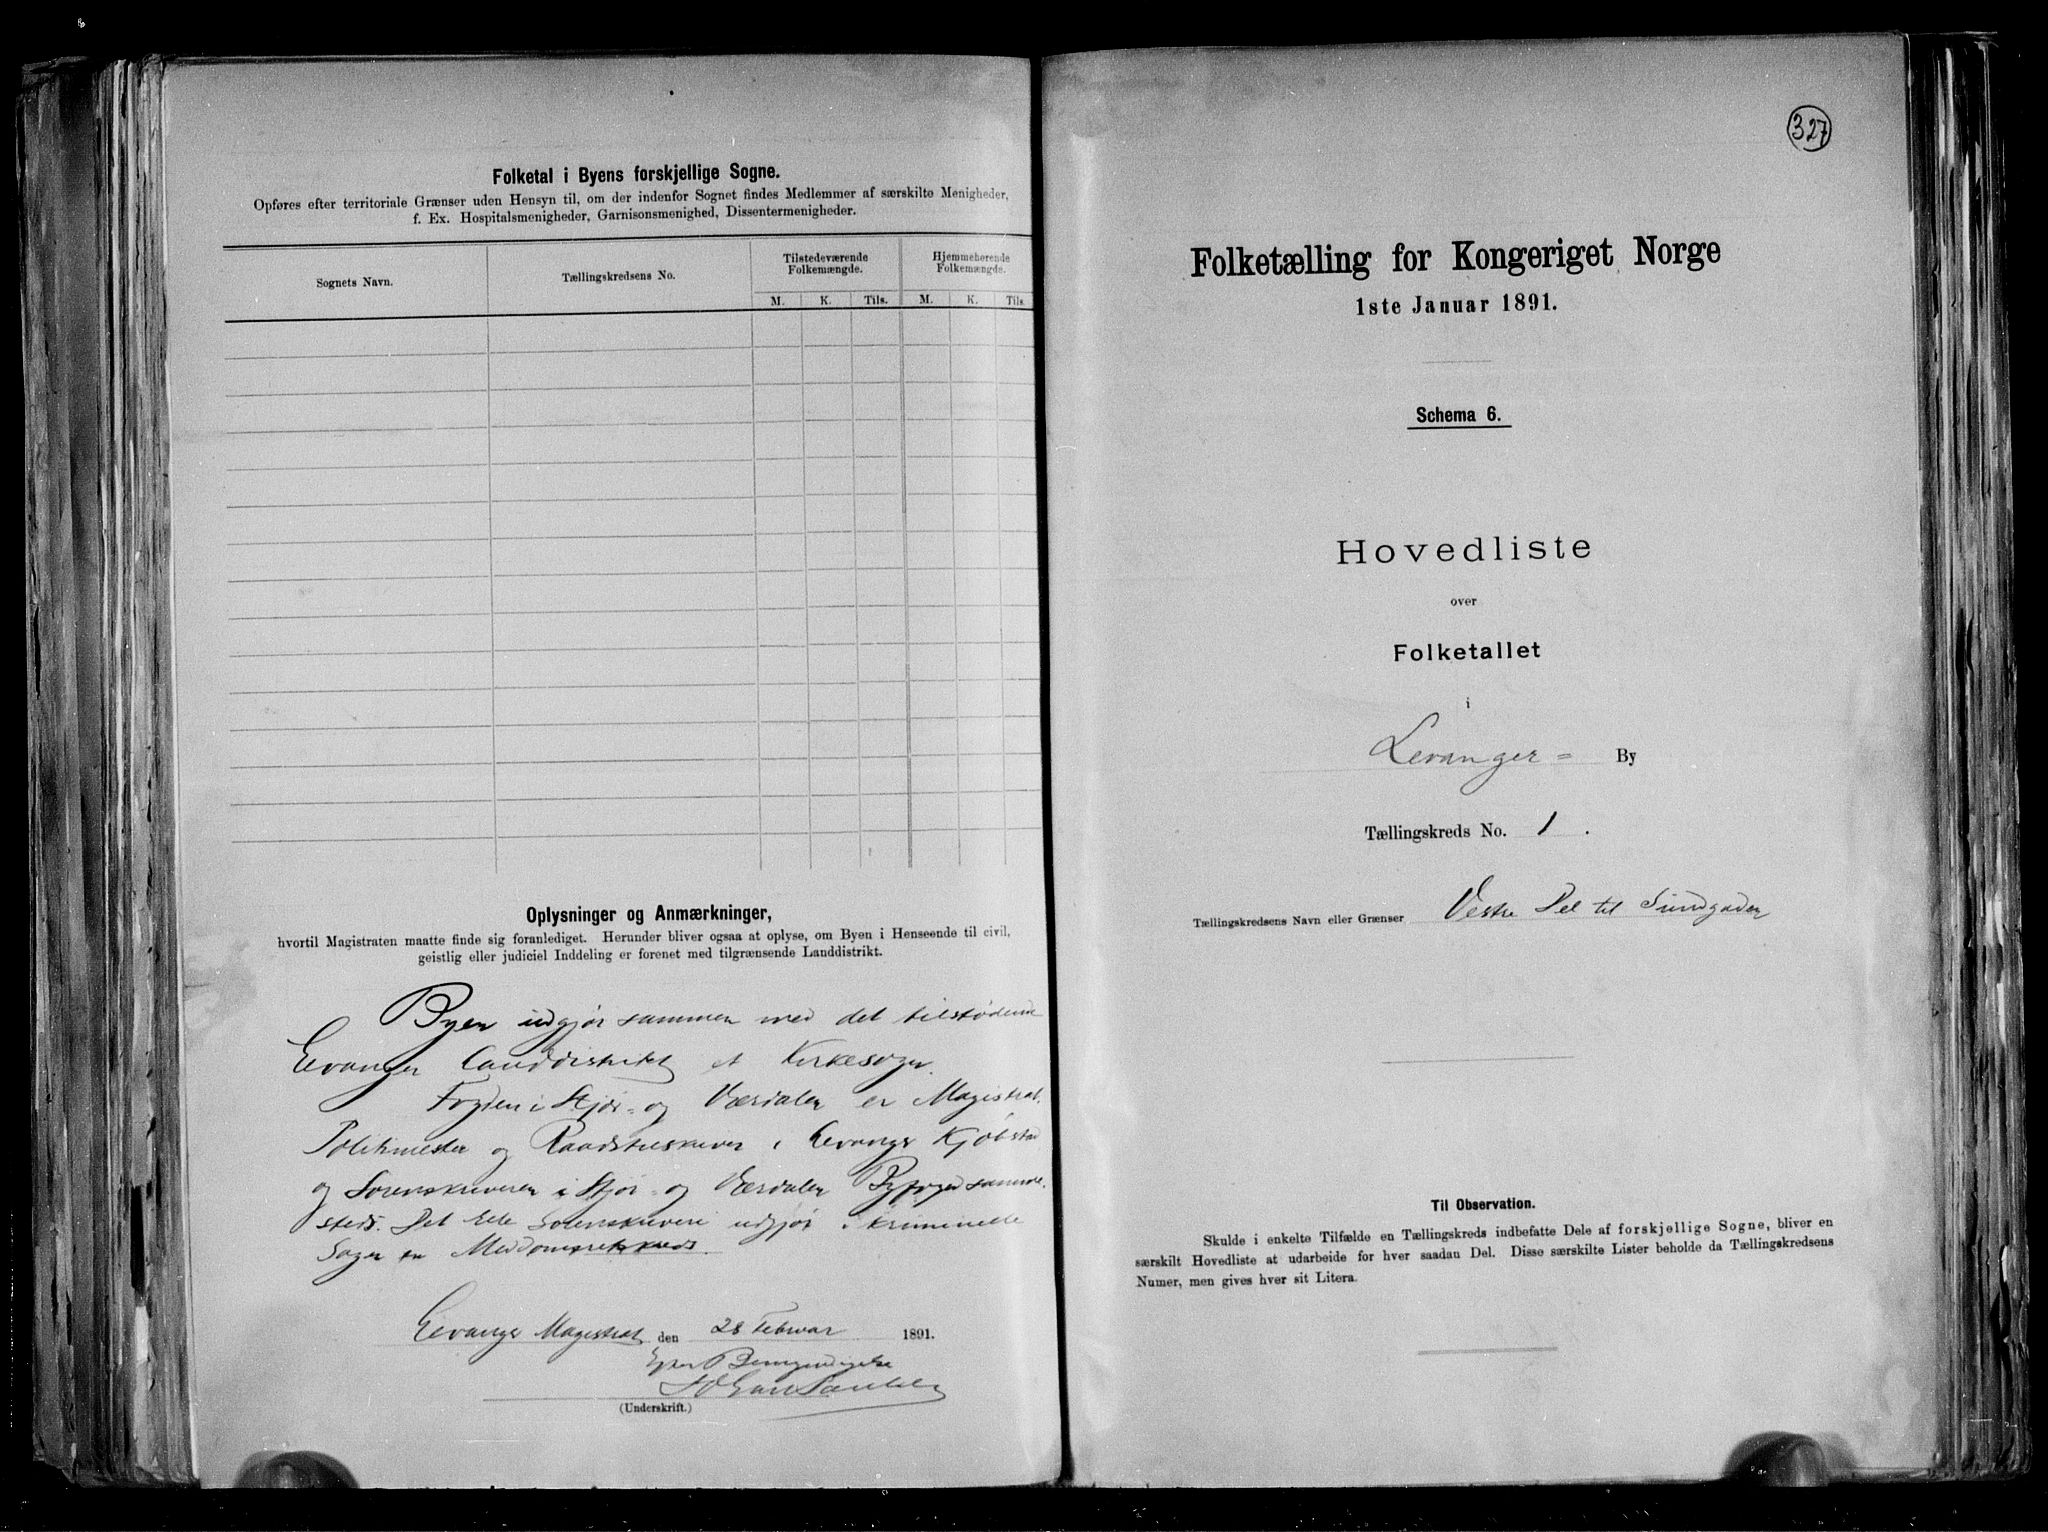 Folketal i Byens forskjellige Sogne.
Opføres efter territoriale Grænser uden Hensyn til, om der indenfor Sognet findes Medlemmer af særskilte Menigheder,
f. Ex. Hospitalsmenigheder, Garnisonsmenighed, Dissentermenigheder.
Sognets Navn.
Tællingskredsens No.
Tilstedeværende Folkemængde.
Hjemmehørende Folkemængde.
M. K. Tils. M. K. Tils.
Oplysninger og Anmærkninger,
hvortil Magistraten maatte finde sig foranlediget. Herunder bliver ogsaa at oplyse, om Byen i Henseende til civil,
geistlig eller judiciel Inddeling er forenet med tilgrænsende Landdistrikt.
Byen udgjør sammen med det tilstødende
Levanger Landdistrikt et Kirkesogn.
Fogden i Stjør- og Værdalen er Magistrat,
Politimester og Raadstueskriver i Levanger Kjøbstad
og Sorenskriveren i Stjør- og Værdalen Byfoged samme-
steds. Det hele Sorenskriveri udgjør i kriminelle
Sager en Meddomsretskreds.
Levanger Magistrat den 28 Februar 1891.
Efter Bemyndigelse
(Underskrift.)
327
Folketælling for Kongeriget Norge
1ste Januar 1891.
Schema 6.
Hovedliste
over
Folketallet
i
Levanger = By
Tællingskreds No. 1.
Tællingskredsens Navn eller Grænser Vestre Del til Sundgaden
Til Observation.
Skulde i enkelte Tilfælde en Tællingskreds indbefatte Dele af forskjellige Sogne, bliver en
særskilt Hovedliste at udarbeide for hver saadan Del. Disse særskilte Lister beholde da Tællingskredsens
Numer, men gives hver sit Litera.